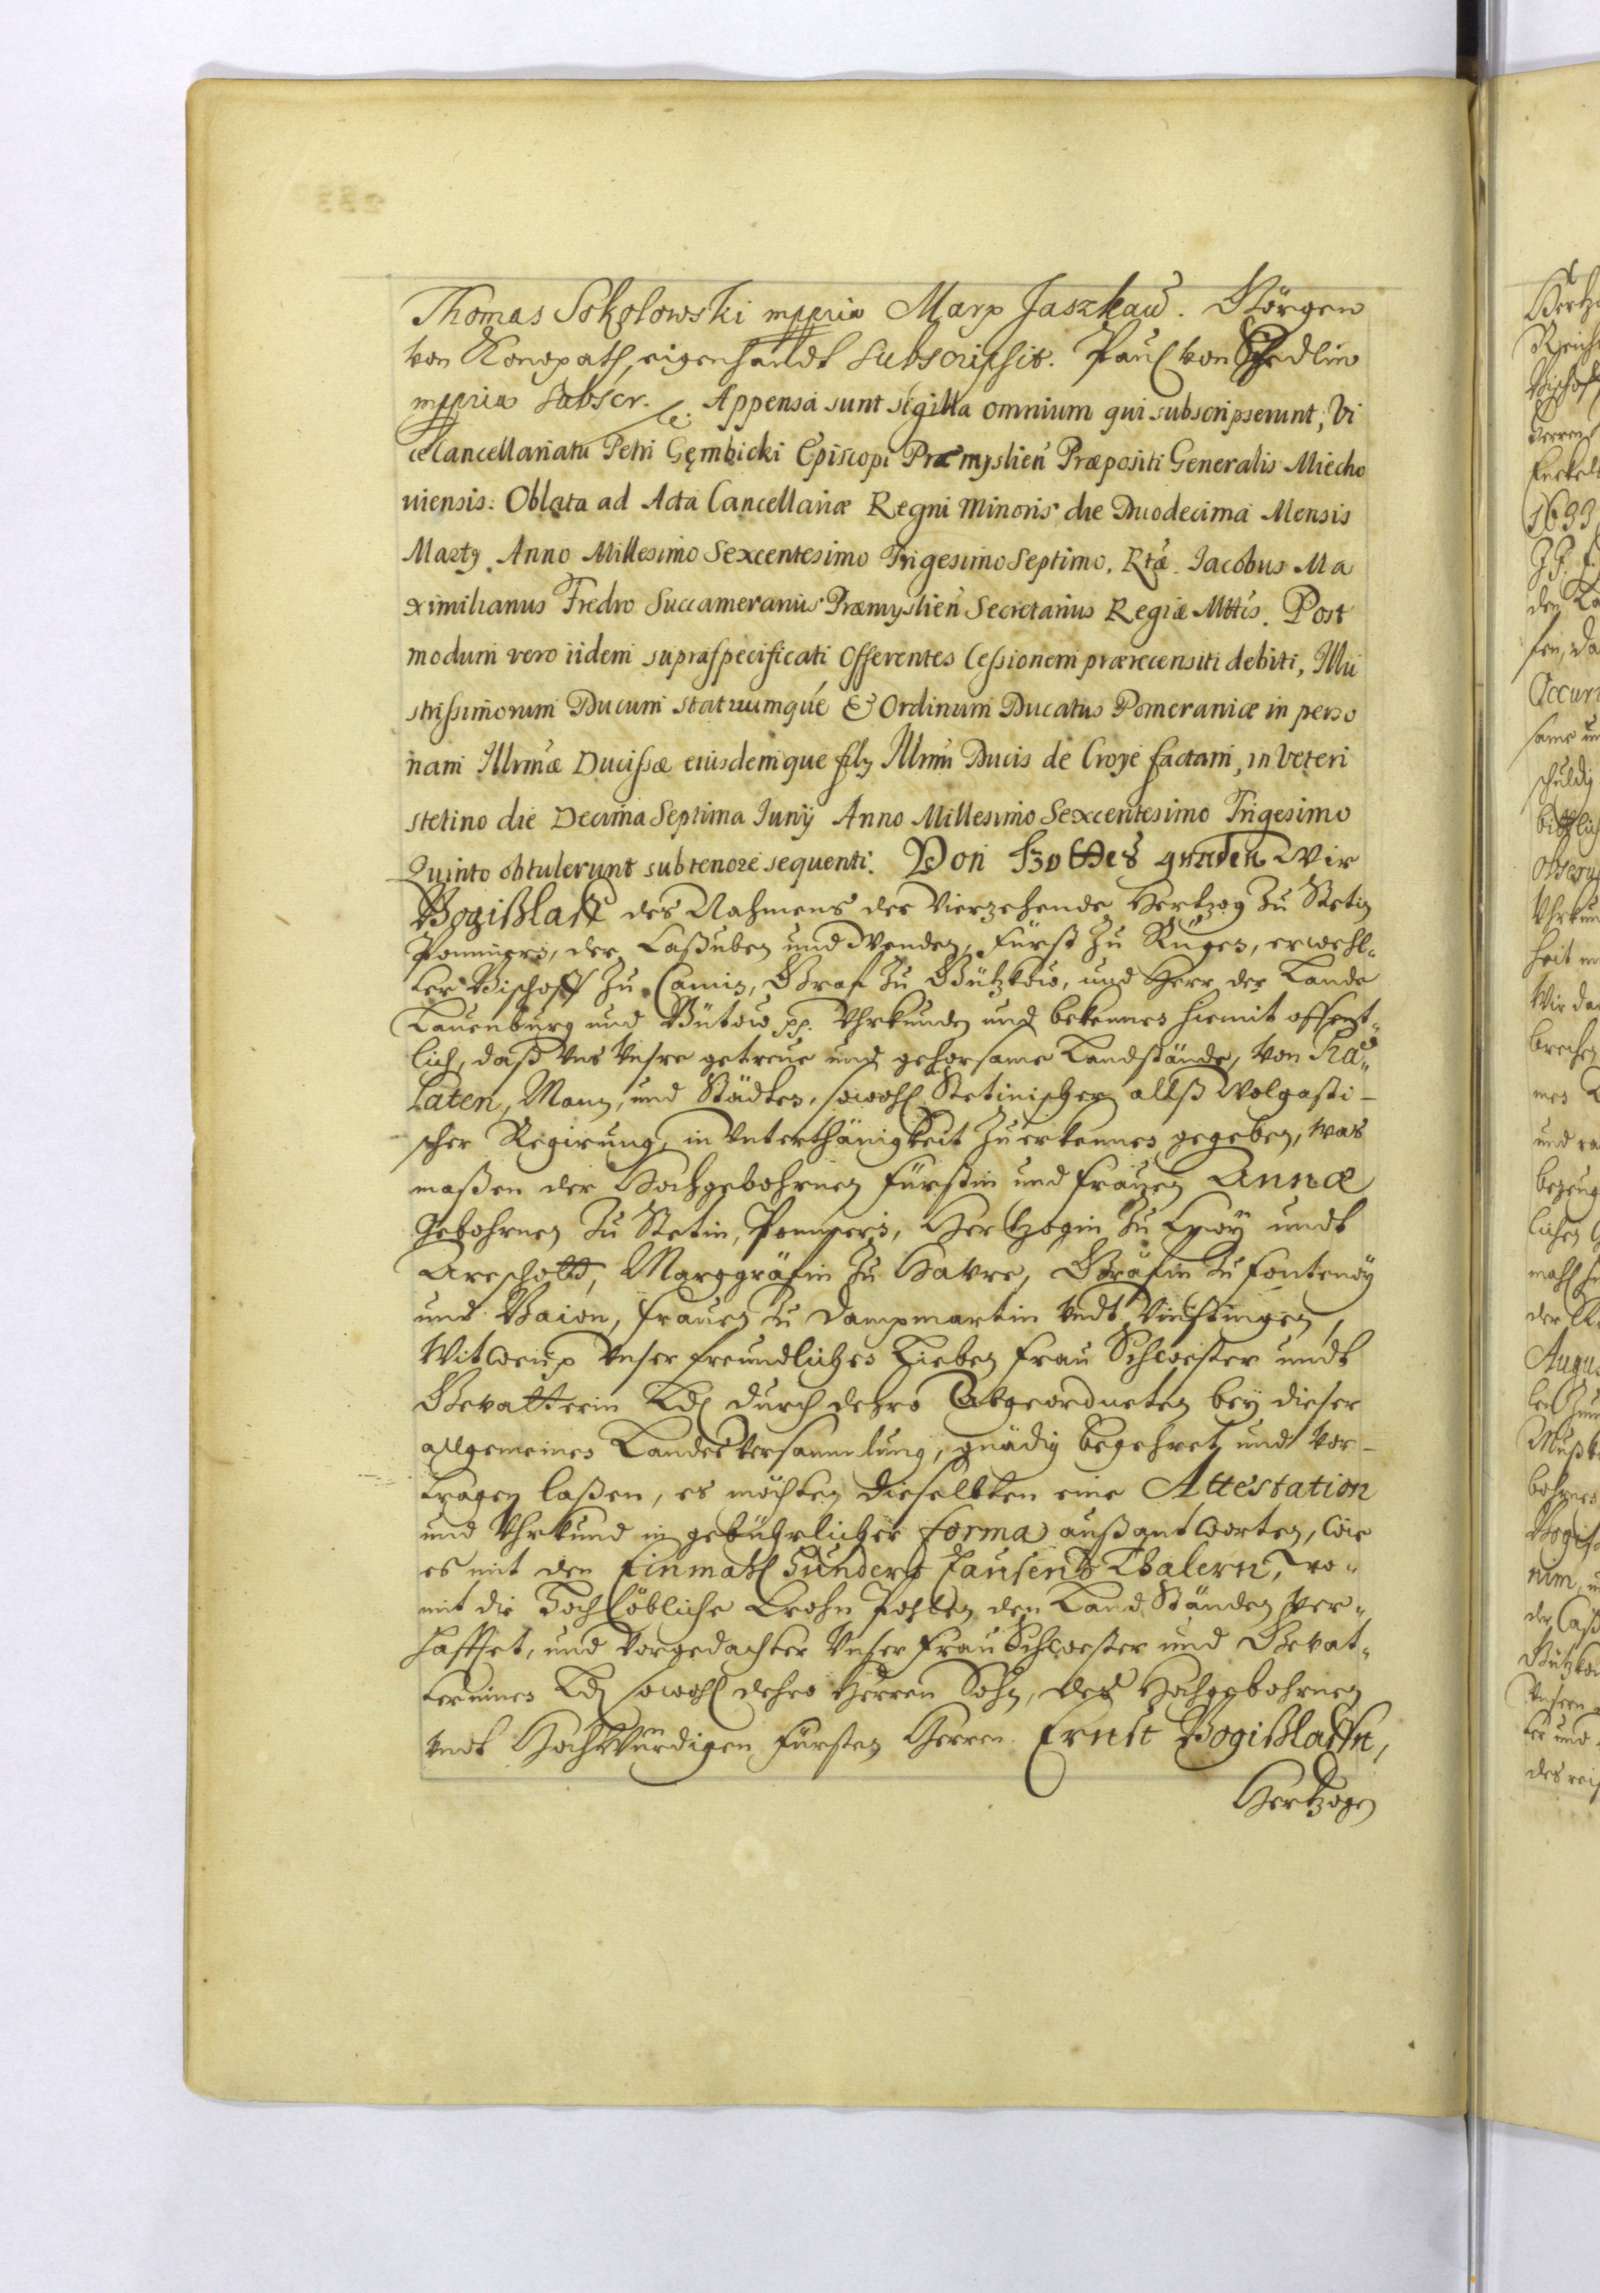 Thomas Sokolowski mppria Marx Jaszkaw. Görgen
von Konopath, eigenhandt subscripsit. Paul von Schedlin
mppria subscr. Appensa sunt sigilla omnium qui subscripserunt, Vi
ceCancellariatu Petri Gęmbicki Episcopi Præmyslien Præpositi Generalis Miecho
viensis. Oblata ad Acta Cancellariæ Regni Minoris die Duodecima Mensis
Marty Anno Millesimo Sexcentesimo Trigesimo Septimo. Rtæ. Iacobus Ma
ximilianus Fredro Succamerarius Præmyslien Secretarius Regiæ Mttis. Post
modum vero iidem supraspecificati Offerentes Cessionem prærecensiti debiti, Illu
strissimorum Ducum statuumque & Ordinum Ducatus Pomeraniæ in perso
nam Illrmæ Ducissæ eiusdemque fily Illrmi Ducis de Croye factam, in Veteri
stetino die Decima Septima Iunÿ Anno Millesimo Sexcentesimo Trigesimo
Quinto obtulerunt sub tenore sequenti. Von Gottes gnaden Wir
Bogißlaff des Nahmens der Vierzehende Hertzog Zu Stetin
Pommern, der Caßuben und Wenden, Fürst Zu Rügen, erwehl„
ter Bischoff Zu Camin, Graf Zu Gützkow, und Herr der Lande
Lauenburg und Bütow pp. Uhrkunden und bekennen hiemit offent„
lich, daß Uns Unsre getreue und gehorsame Landstände, von Præ„
laten, Mann, und Städten, sowohl Stetinischer allß Wolgasti-
scher Regirung, in Unterthänigkeit Zu erkennen gegeben, was
maßen der Hochgebohrnen Fürstin und Frauen Annæ
Gebohrnen Zu Stetin, Pommern, Hertzogin Zu Croÿ undt
Arschott, Marggräfin Zu Havre, Gräfin Zu Fontenoÿ
und Baion, Frauen Zu Dampmartin undt Vinstingen,
Witwen p Unser freundlichen Lieben Frau Schwester undt
Gevatterin Ld durch dehro Abgeordneten beÿ dieser
allgemeinen Landes Versammlung, gnädig begehret und vor-
tragen laßen, es möchten Dieselbten eine Attestation
und Uhrkund in gebührlicher forma außantworten, wie
es mit den Einmahl Hundert Tausend Thalern, wo„
mit die Hochlöbliche Crohn Pohlen den Land Ständen ver„
hafftet, und vorgedachter Unser Frau Schwester und Gevat„
terinnen Ld sowohl dehro Herren Sohn, des Hochgebohrnen
undt Hochwürdigen Fürsten Herren Ernst Bogißlaffn,
Hertzogen